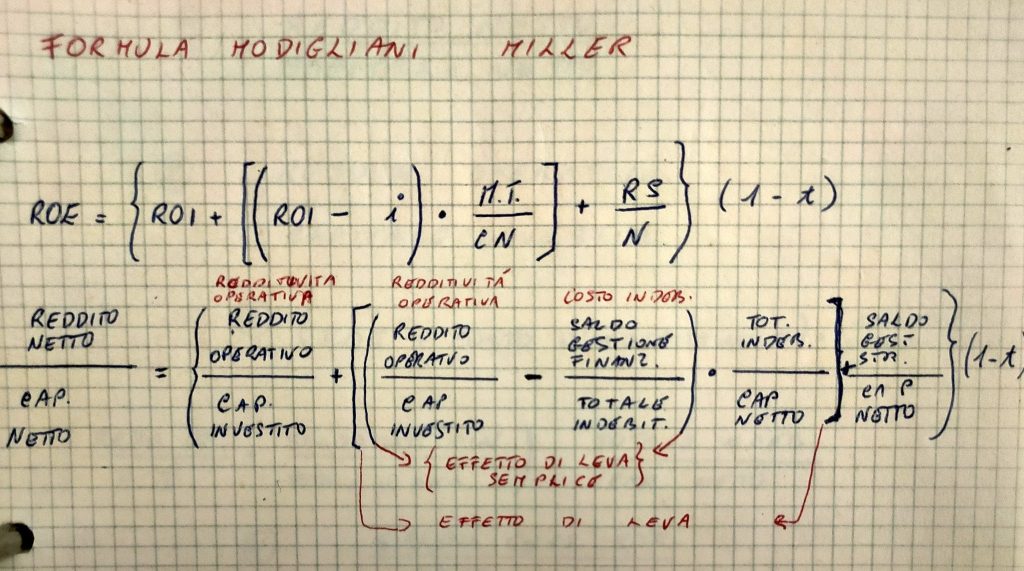 FORMULA MODIGLIANI MILLER
ROE = { ROI + [ ( ROI - i ) · M.T. / CN ] + RS / N } (1 - t)
REDDITIVITA OPERATIVA REDDITIVITÁ OPERATIVA COSTO INDEB.
REDDITO NETTO / CAP. NETTO = { REDDITO OPERATIVO / CAP. INVESTITO + [ ( REDDITO OPERATIVO / CAP INVESTITO - SALDO GESTIONE FINANZ. / TOTALE INDEBIT. ) · TOT. INDEB. / CAP NETTO ] + SALDO GEST STR. / CAP NETTO } (1-t)
{ EFFETTO DI LEVA SEMPLICE }
EFFETTO DI LEVA